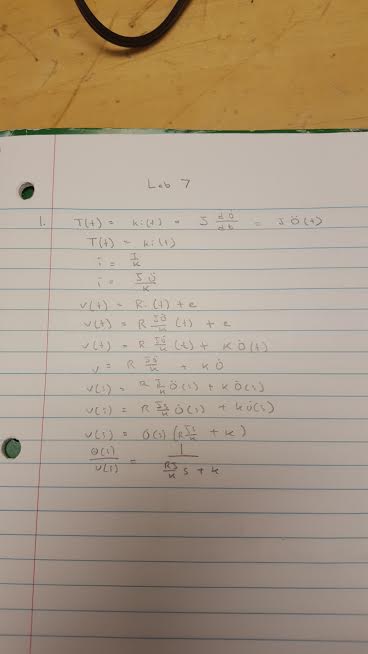 Lab 7
1. T(t) = ki(t) = J dθ̇/dt = J θ̈(t)
T(t) = ki(t)
i = T/k
i = Jθ̈/k
v(t) = Ri(t) + e
v(t) = R Jθ̈/k (t) + e
v(t) = R Jθ̈/k (t) + k θ̇(t)
v = R Jθ̈/k + k θ̇
v(s) = R J/k θ̈(s) + k θ̇(s)
v(s) = R Js/k θ̇(s) + k θ̇(s)
v(s) = θ̇(s) (R Js/k + k)
θ̇(s)/v(s) = 1/(RJ/k s + k)